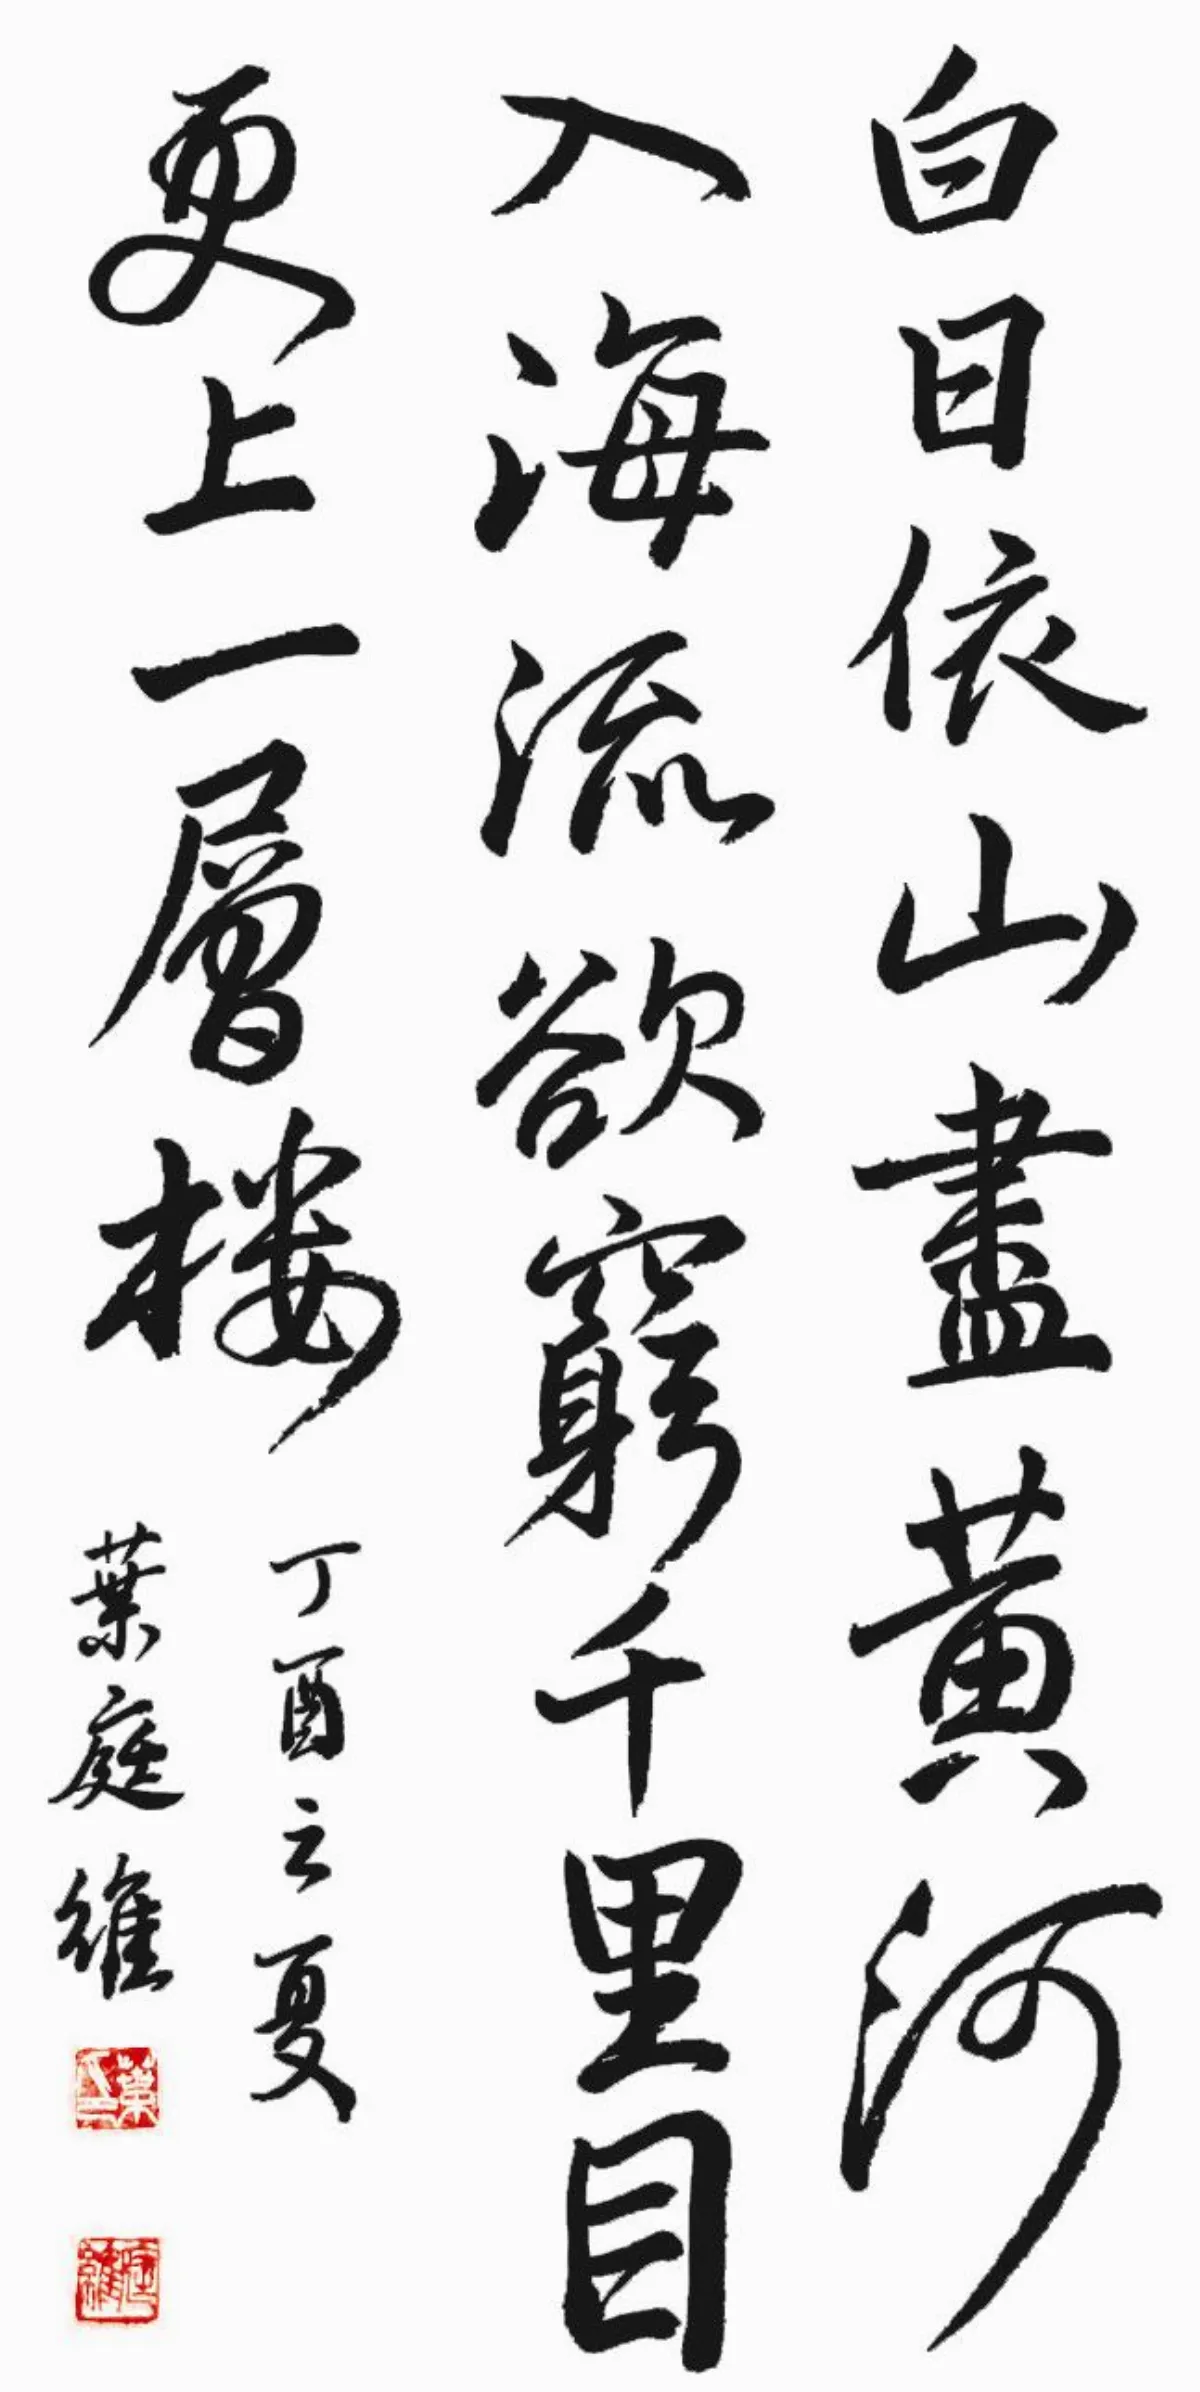 白日依山盡黃河
入海流欲窮千里目
更上一層楼
丁酉之夏
葉庭維